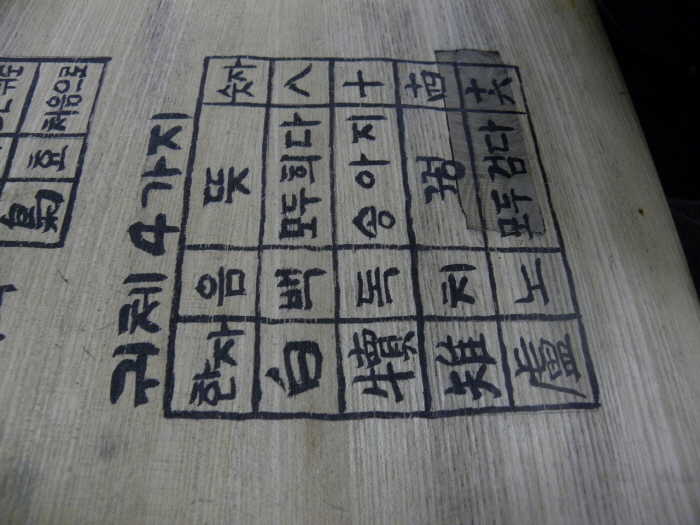 梟 효 처음으로
귀체4가지
한자 음 뜻 숫자
白 백 모두희다 八
犢 독 송아지 十
雉 치 꿩 十四
盧 노 모두검다 十六